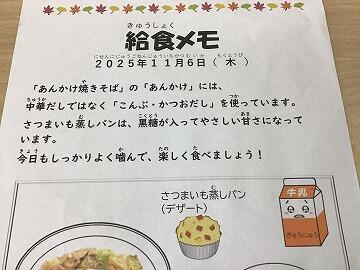 きゅうしょく
給食メモ
にせんにじゅうごねんじゅういちがつむいか もくようび
2025年11月6日(木)
「あんかけ焼きそば」の「あんかけ」には、
中華だしではなく「こんぶ・かつおだし」を使っています。
さつまいも蒸しパンは、黒糖が入ってやさしい甘さになって
います。
今日もしっかりよく噛んで、楽しく食べましょう!
さつまいも蒸しパン
(デザート)
牛乳
ぎゅうにゅう